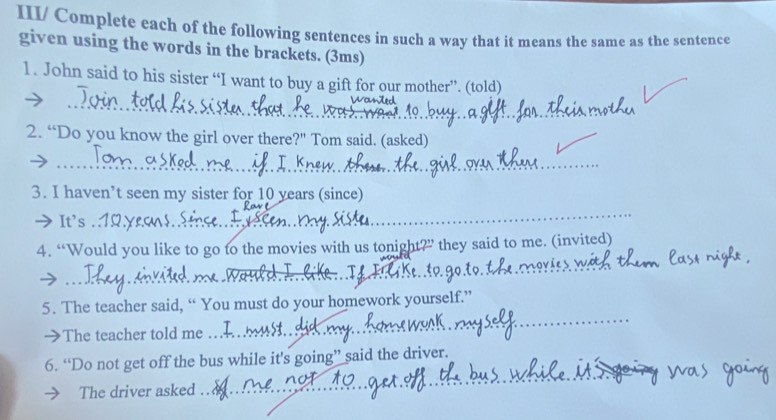 III/ Complete each of the following sentences in such a way that it means the same as the sentence
given using the words in the brackets. (3ms)
1. John said to his sister “I want to buy a gift for our mother”. (told)
→ Join told his sister that he was want wanted to buy a gift for their mother
2. “Do you know the girl over there?" Tom said. (asked)
→ Tom asked me if I knew the girl over there
3. I haven’t seen my sister for 10 years (since)
→ It’s 10 years since I have seen my sister
4. “Would you like to go to the movies with us tonight?” they said to me. (invited)
→ They invited me would I like If I would like to go to the movies with them last night.
5. The teacher said, “ You must do your homework yourself.”
→ The teacher told me I must did my homework myself
6. “Do not get off the bus while it's going” said the driver.
→ The driver asked if me not to get off the bus while it's going was going